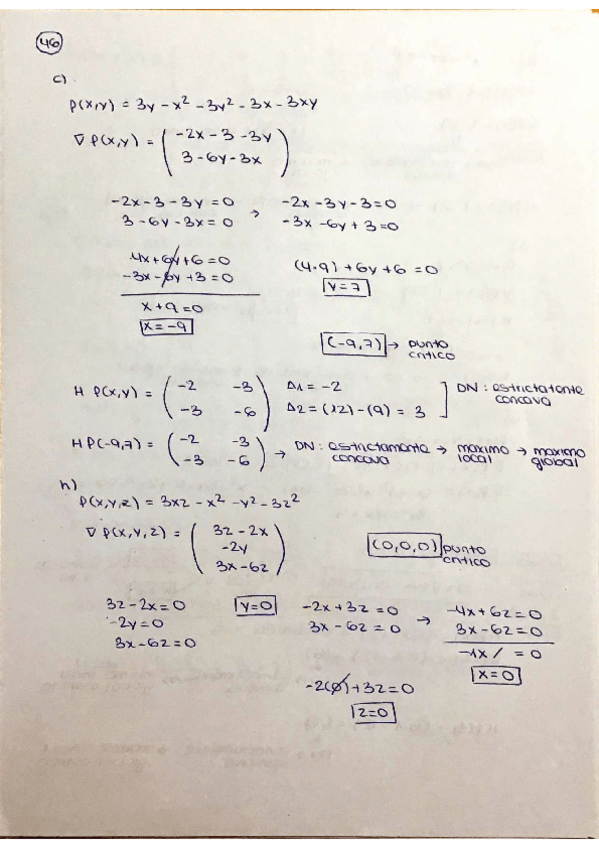 46
c)
P(x,y) = 3y - x² - 3y² - 3x - 3xy
∇ P(x,y) = ( -2x - 3 - 3y
3 - 6y - 3x )
-2x - 3 - 3y = 0 → -2x - 3y - 3 = 0
3 - 6y - 3x = 0 -3x - 6y + 3 = 0
4x + 6y + 6 = 0
-3x - 6y + 3 = 0
(4·9) + 6y + 6 = 0
x + 9 = 0
y = 7
x = -9
(-9,7) → punto
crítico
H P(x,y) = ( -2 -3
-3 -6 )
Δ1 = -2
Δ2 = (12) - (9) = 3
DN : estrictatente
concava
H P(-9,7) = ( -2 -3
-3 -6 ) → DN : estrictamente
concava → maximo
local → maximo
global
h)
P(x,y,z) = 3xz - x² - y² - 3z²
∇ P(x,y,z) = ( 3z - 2x
-2y
3x - 6z )
(0,0,0) punto
crítico
3z - 2x = 0
-2y = 0
3x - 6z = 0
y = 0
-2x + 3z = 0
3x - 6z = 0
→ -4x + 6z = 0
3x - 6z = 0
-1x / = 0
x = 0
-2(0) + 3z = 0
z = 0